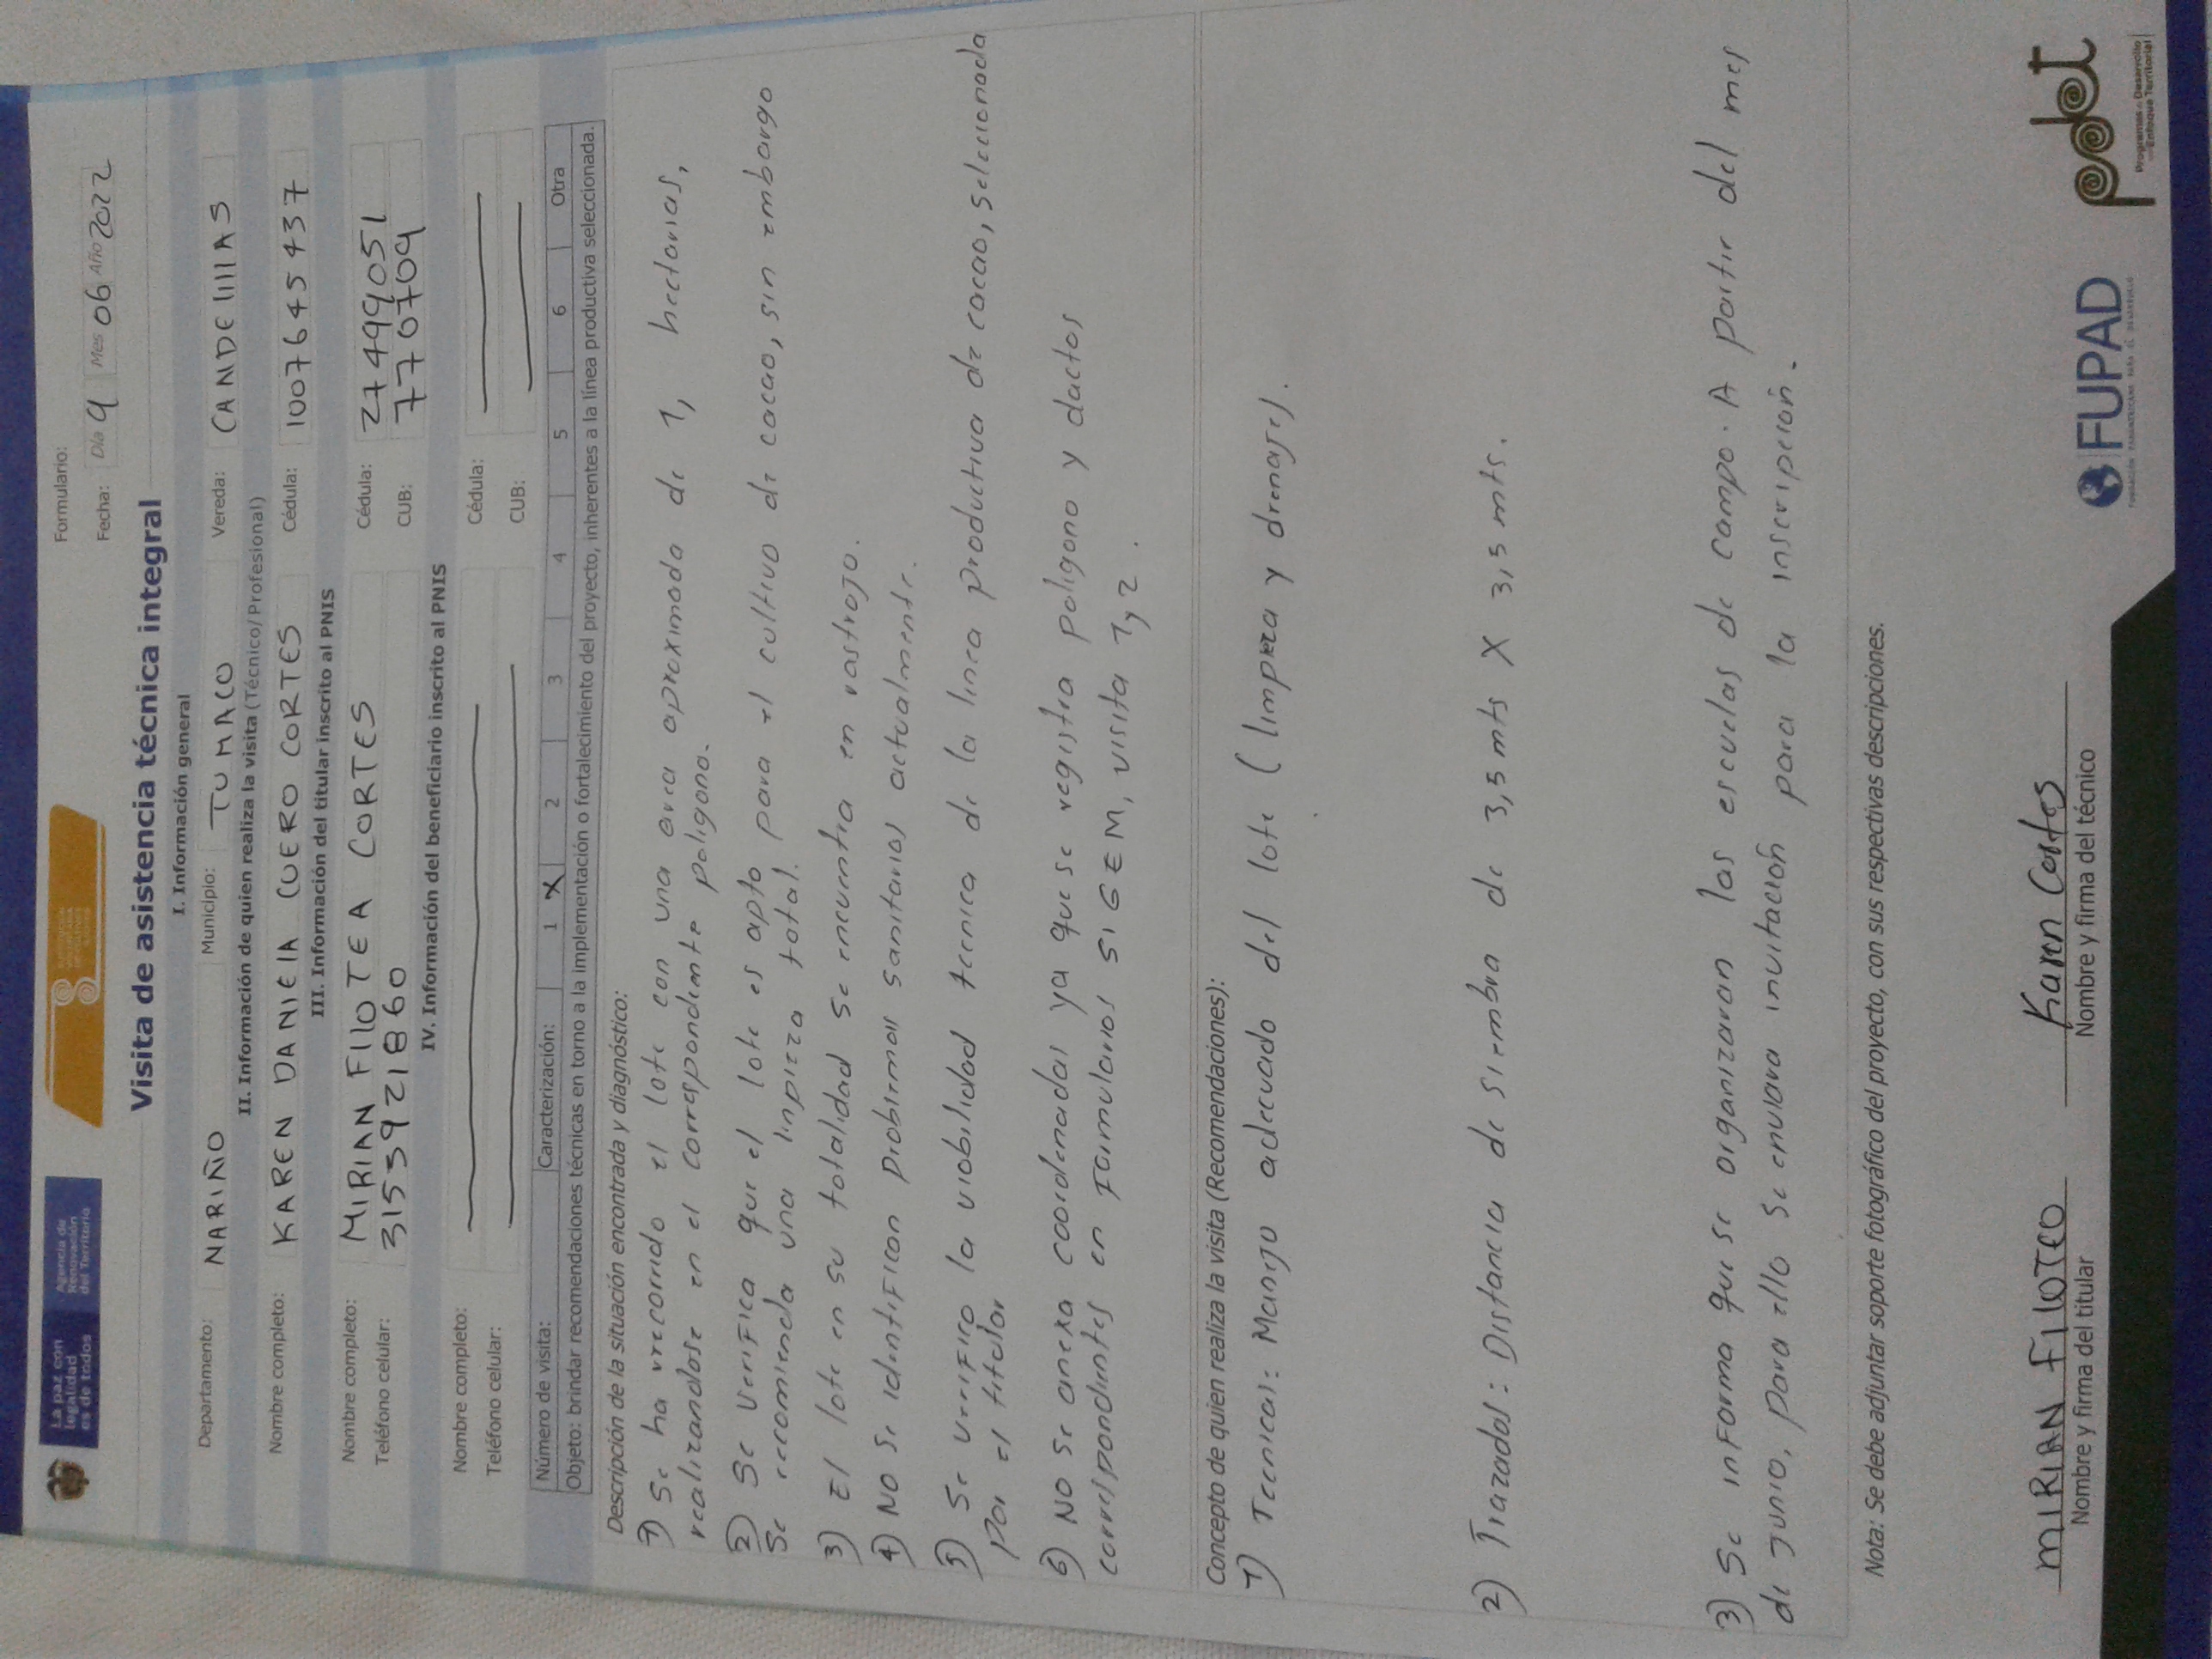 La paz con
legalidad
es de todos
Agencia de
Renovación
del Territorio
Formulario:
Fecha: Día 9 Mes 06 Año 2022
Visita de asistencia técnica integral
I. Información general
Departamento: NARIÑO Municipio: TUMACO Vereda: CANDELILLAS
II. Información de quien realiza la visita (Técnico/ Profesional)
Nombre completo: KAREN DANIELA CUERO CORTES Cédula: 1007645437
III. Información del titular inscrito al PNIS
Nombre completo: MIRIAN FILOTEA CORTES Cédula: 27499051
Teléfono celular: 3153921860 CUB: 7706709
IV. Información del beneficiario inscrito al PNIS
Nombre completo: Cédula:
Teléfono celular: CUB:
Número de visita: Caracterización: 1 X 2 3 4 5 6 Otra
Objeto: brindar recomendaciones técnicas en torno a la implementación o fortalecimiento del proyecto, inherentes a la línea productiva seleccionada.
Descripción de la situación encontrada y diagnóstico:
1) Se ha vrecorrido el lote con una area aproximada de 1, hectarias,
realizandose en el correspondiente poligono.
2) Se verifica que el lote es apto para el cultivo de cacao, sin embargo
Se recomienda una limpieza total.
3) El lote en su totalidad se encuentra en rastrojo.
4) No se identifican problemas sanitarios actualmente.
5) Se verifico la viabilidad tecnica de la linea productiva de cacao, seleccionada
por el titular
6) No se anexa coordenadas ya que se registra poligono y dactos
correspondientes en Formularios SIGEM, visita 1 y 2.
Concepto de quien realiza la visita (Recomendaciones):
1) Tecnicas: Manejo adecuado del lote (limpieza y drenajes).
2) Trazados: Distancia de siembra de 3,5 mts X 3,5 mts.
3) Se informa que se organizaran las escuelas de campo. A partir del mes
de junio, para ello se enviara invitación para la inscripción.
Nota: Se debe adjuntar soporte fotográfico del proyecto, con sus respectivas descripciones.
MIRIAN FILOTEO Karen Cortes
Nombre y firma del titular Nombre y firma del técnico
FUPAD
FUNDACIÓN PANAMERICANA PARA EL DESARROLLO
pdet
Programas de Desarrollo
con Enfoque Territorial